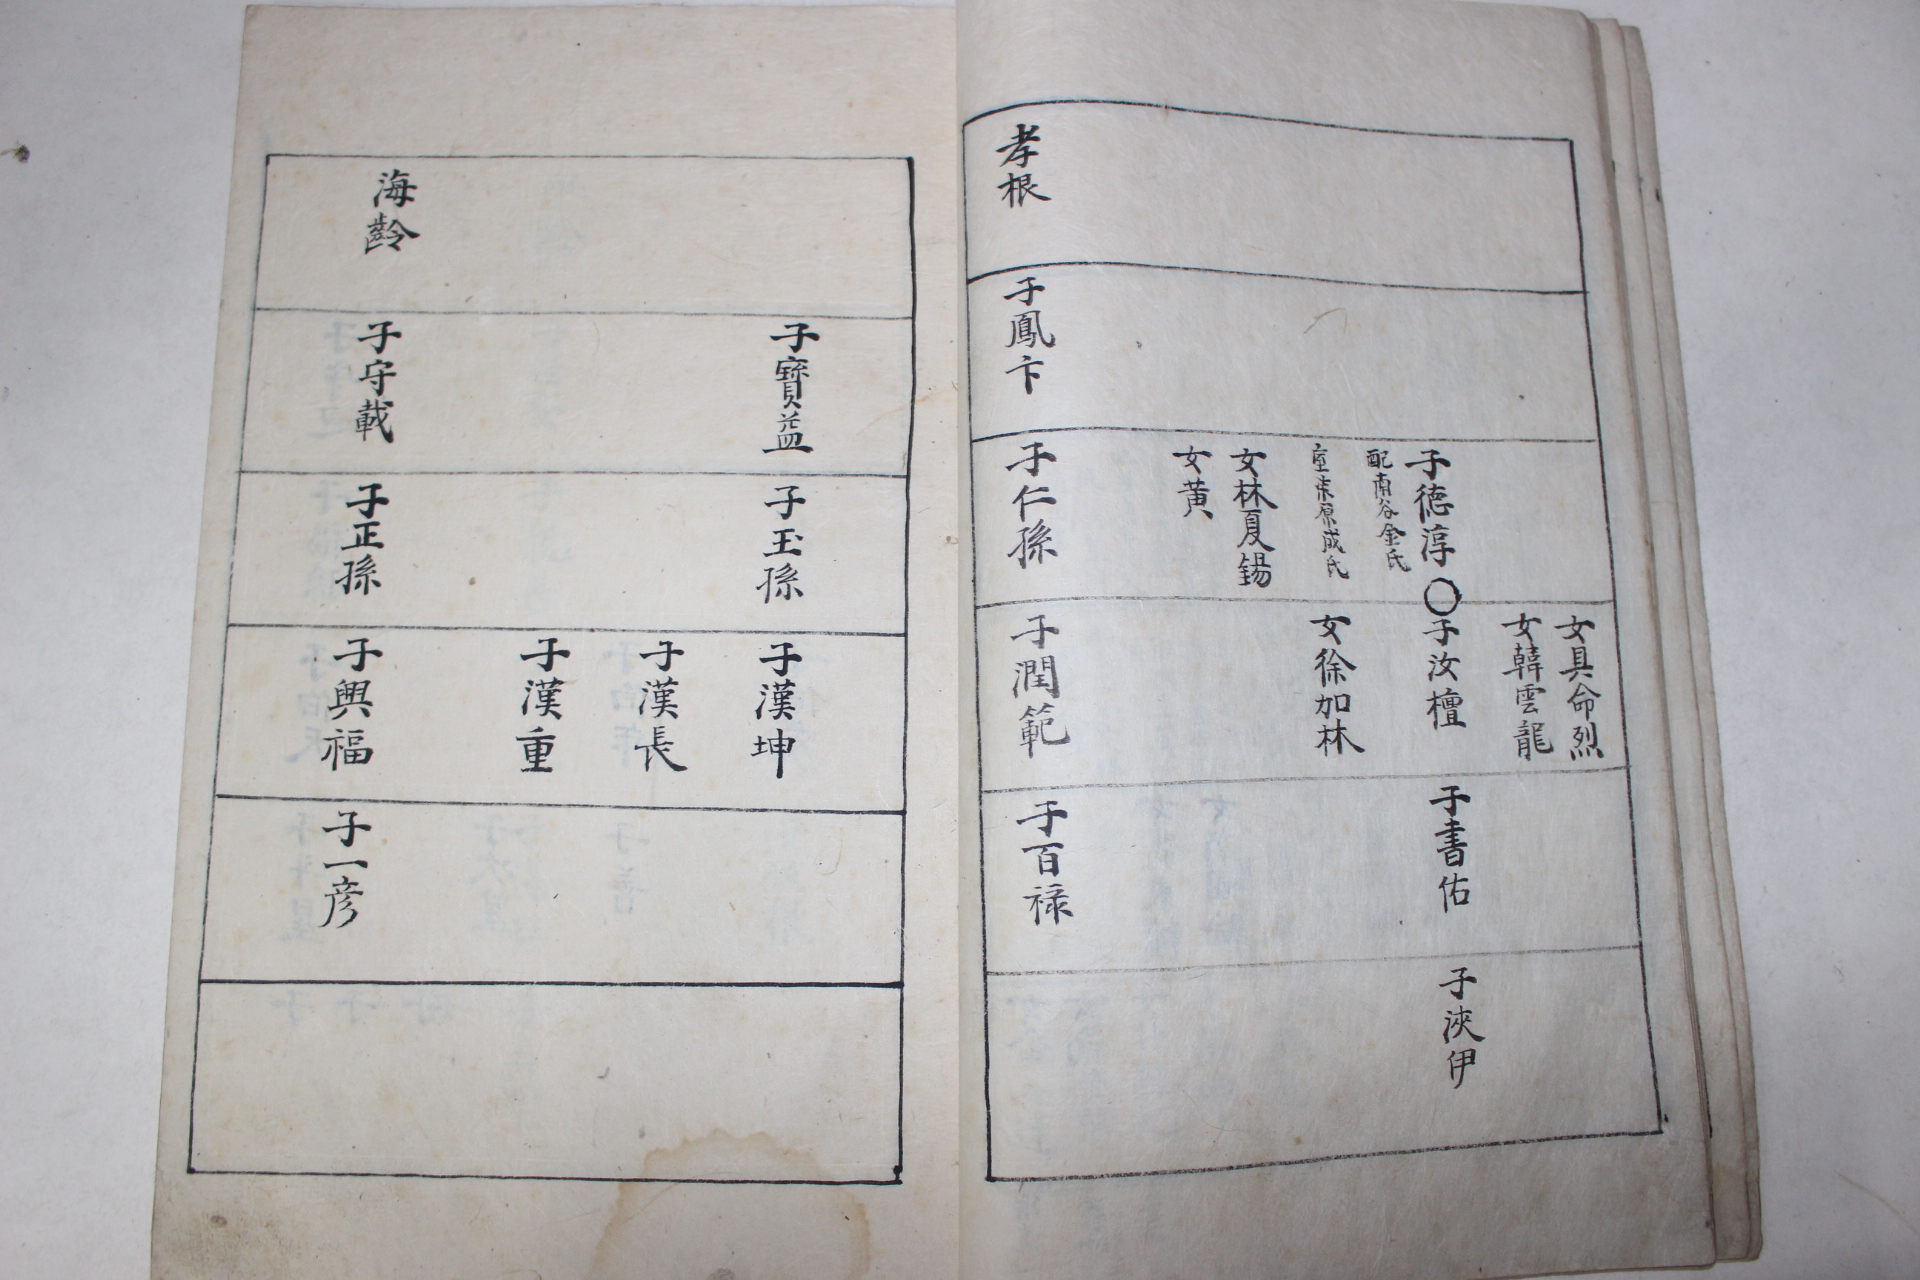 孝根
子鳳卞
子德淳
配南谷金氏
室柒原成氏
女林夏錫
女黃
子仁孫
女具命烈
女韓雲龍
子汝檀
女徐加林
子潤範
子書佑
子百禄
子浹伊
海齡
子寶益
子守載
子玉孫
子正孫
子漢坤
子漢長
子漢重
子興福
子一彦